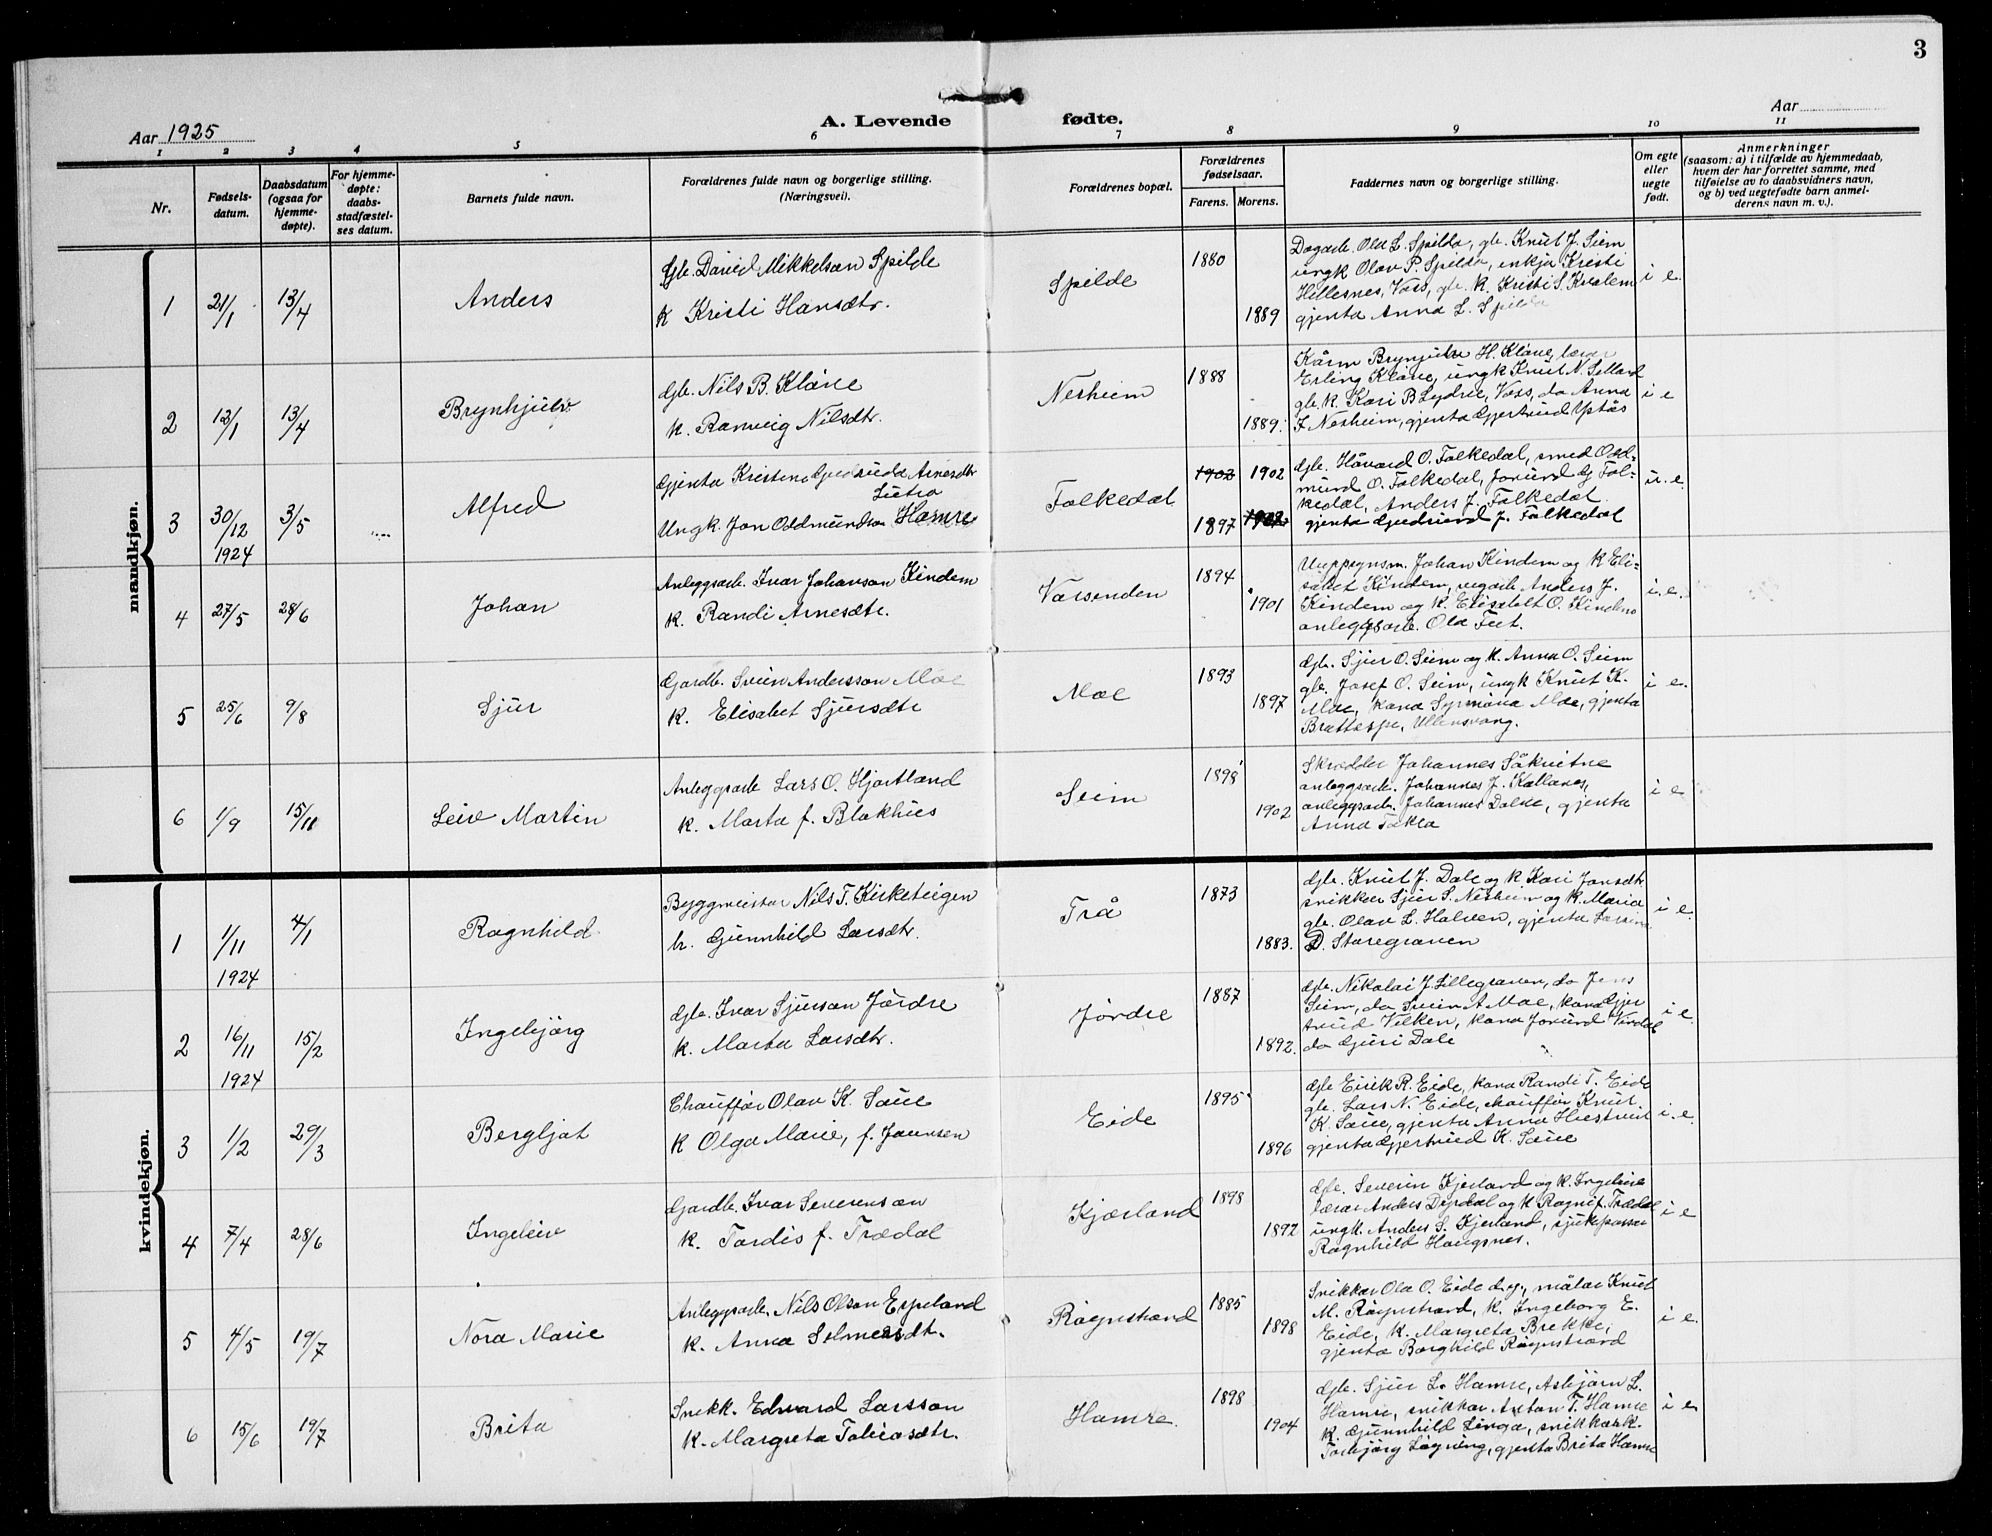 3
Aar 1925
A. Levende fødte.
Aar
1 2 3 4 5 6 7 8 9 10 11
Nr.
Fødsels-
datum.
Daabsdatum
(ogsaa for
hjemme-
døpte).
For hjemme-
døpte:
daabs-
stadfæstel-
ses datum.
Barnets fulde navn.
Forældrenes fulde navn og borgerlige stilling.
(Næringsvei).
Forældrenes bopæl.
Forældrenes
fødselsaar.
Farens. Morens.
Faddernes navn og borgerlige stilling.
Om egte
eller
uegte
født.
Anmerkninger
(saasom: a) i tilfælde av hjemmedaab,
hvem der har forrettet samme, med
tilføielse av to daabsvidners navn,
og b) ved uegtefødte barn anmel-
derens navn m. v.).
mandkjøn.
1 21/1 13/4 Anders
Gb. David Mikkelsen Spilde
K Kristi Hansdtr.
Spilde 1880 1889
Dagarb. Ola L. Spilda, gb. Knut J. Seim
ungk Olav P. Spilda, enkja Kristi
Hillesnes, Voss, gb. K. Kristi S. Kvalem
gjenta Anna L. Spilda
i e.
2 13/4 Brynhjulv
Gb. Nils B. Kløve
K. Ranveig Nilsdtr.
Nesheim 1888 1889.
H. Kløve, lærer
Erling Kløve, ungk Knut N.
gb. K. Kari B Lydve, Voss, do Anna
I Nesheim, gjenta Gjertrud Ystås
i e
3 30/12 1924 3/5 Alfred
Gjenta Kristina Arnesdtr
Ungk. Jon Oddmundson Hamre
Folkedal 1902 1902 1897
Gb. Håvard O. Folkedal, smed Odd-
mund O. Folkedal, Jorund G Fol-
kedal, Anders J. Folkedal
gjenta Gudrund J. Folkedal
u. e.
4 27/5 28/6 Johan
Anleggsarb. Ivar Johanson Kindem
K. Randi Arnesdtr.
1894 1901
Johan Kindem og K Eli-
sabet Kindem, vegarb Anders J.
Kindem og K. Elisabet O. Kindem
anleggsarb. Ola Tut.
i. e.
5 25/6 9/8 Sjur
Gardb. Svein Andersson Moe
K. Elisabet Sjursdtr
Moe 1893 1897
Gb. Sjur O. Seim og K. Anna O. Seim
gb. Josef O. Seim, ungk Knut K.
Moe, kona Symona Moe, gjenta
Brattespe, Ullensvang.
i e.
6 1/9 15/11 Leiv Martin
Anleggsarb Lars O. Hjartland
K. Marta f. Blakhus
Seim 1898 1902
Skredder Johannes Såkvitne
anleggsarb. Johannes J. Kollanes,
anleggsarb. Johannes Dolve, gjenta
Anna Takla
i e
kvindekjøn.
1 1/11 1924 4/1 Ragnhild
Byggmeister Nils T. Kirketeigen
K. Gunnhild Larsdtr.
Trå 1873 1883.
Gb. Knut J. Dale og K Kari Jonsdtr
snikkar Sjur S. Nesheim og K. Maria
gb. Olav L. Halven, gjenta
D. Storegraven
i e.
2 16/11 1924 15/2 Ingebjörg
Gb. Ivar Sjurson Jördre
K. Marta Larsdtr.
Jördre 1887 1892.
Gb. Nikolai J. Lillegraven, do Jens
Seim, do Svein A Moe, kona Gjer
trud Vilken, kona Jorund
do Guri Dale
i e.
3 1/2 29/3 Bergljot
Chauffør Olav K. Saue
K Olga Marie, f. Jonsen
Eide 1895 1896
Gb Eirik R. Eide, kona Randi T. Eide
gb. Lars N. Eide, chauffør Knut
K. Saue, gjenta Anna
gjenta Gjertrud K. Saue
i. e.
4 7/4 28/6 Ingeleiv
Gardb. Ivar Severinson
K. Tordis f. Trædal
Kjærland 1898 1892
Gb. Severin Kjerland og K. Ingeline
lærar Anders Dyrdal og K Ragni f. Trædal
ungk. Anders S. Kjerland, sjukpasser
Ragnhild Haugsnes.
i e
5 4/5 19/7 Nora Marie
Anleggsarb. Nils Olson Espeland
K. Anna Selmersdtr.
Røynstrand 1885 1898
Snikkar Ola O. Eide d.y., målar Knut
M. Røynstrand, K. Ingeborg E.
Eide, K. Margreta Brekke,
gjenta Borghild Røynstrand
i e.
6 15/6 19/7 Brita
Snekk. Edvard Larsson
K. Margreta Tobiasdtr.
Hamre. 1898 1904
Gb. Sjur L. Hamre, Asbjørn L.
Hamre, snikkar Anton T. Hamre
K. Gunnhild Linga, snikkark.
Torbjörg Løyning, gjenta Brita Hamre
i e